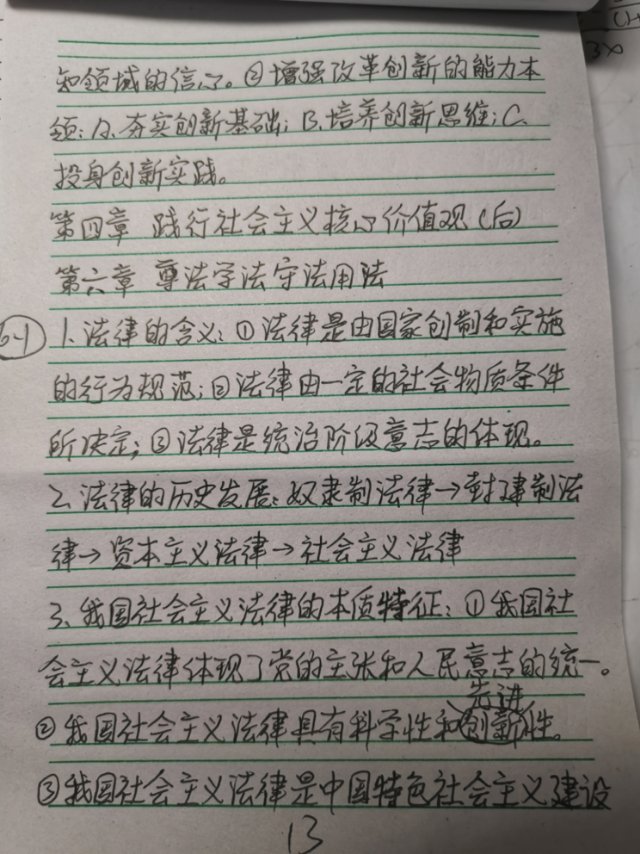 知领域的信心。②增强改革创新的能力本
领：A.夯实创新基础；B.培养创新思维；C.
投身创新实践。
第四章 践行社会主义核心价值观（后）
第六章 尊法学法守法用法
6-1 1.法律的含义：①法律是由国家创制和实施
的行为规范；②法律由一定的社会物质条件
所决定；③法律是统治阶级意志的体现。
2.法律的历史发展：奴隶制法律→封建制法
律→资本主义法律→社会主义法律
3.我国社会主义法律的本质特征：①我国社
会主义法律体现了党的主张和人民意志的统一。
先进
②我国社会主义法律具有科学性和创新性。
③我国社会主义法律是中国特色社会主义建设
13